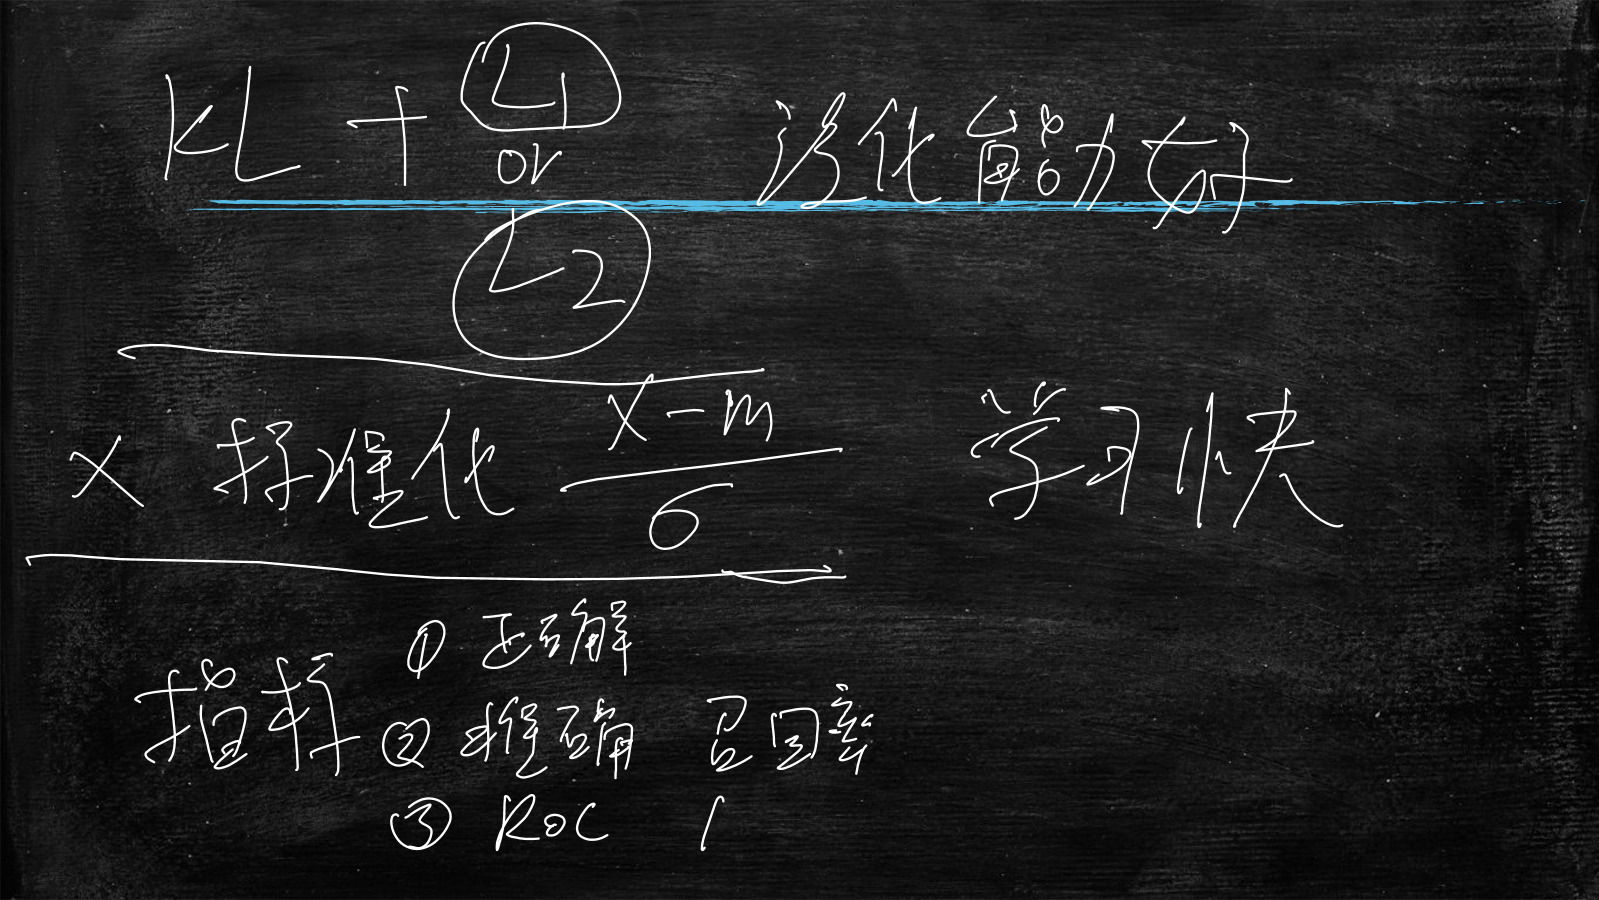 KL + L1 泛化能力好
or
L2
X 标准化 X-m 学习快
6
① 正确解
指标 ② 准确 召回率
③ ROC